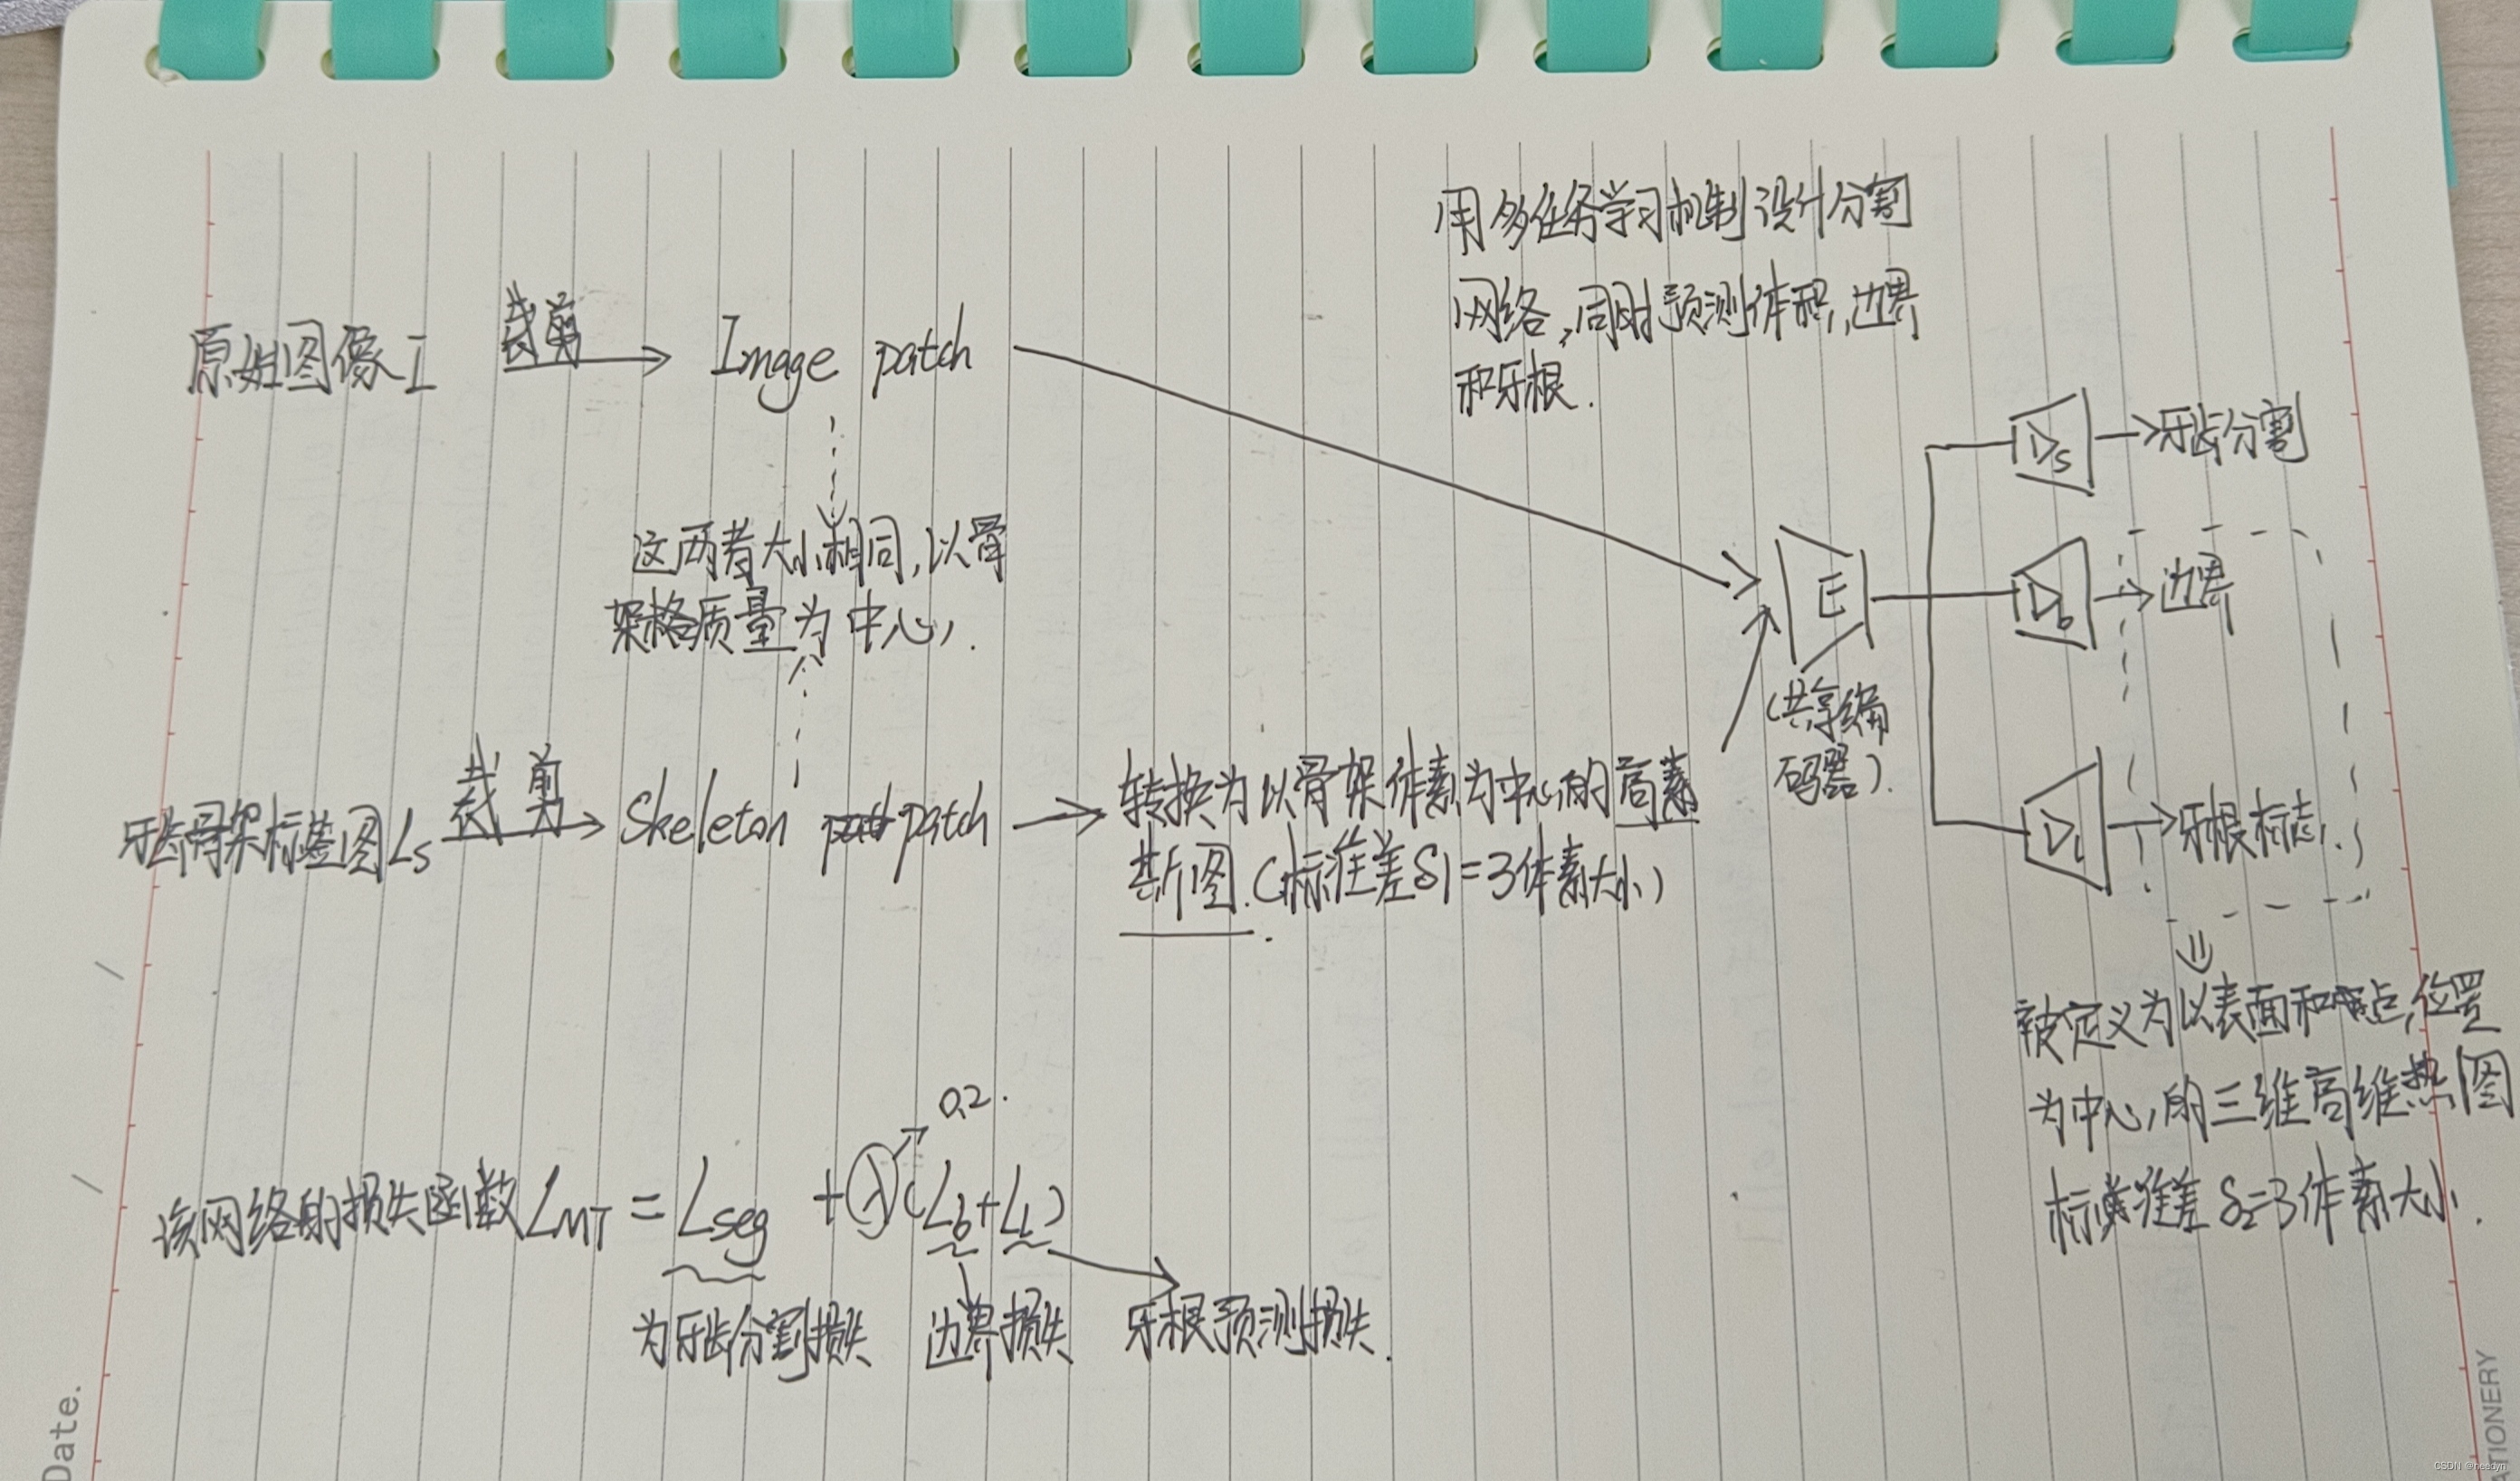 用多任务学习机制设计分割
网络,同时预测体积,边界
和牙根.
原始图像I
裁剪
Image patch
这两者大小相同,以骨
架格质量为中心.
牙齿骨架标签图Ls
裁剪
Skeleton patch
转换为以骨架体素为中心的高
斯图.(标准差δ1=3体素大小)
E
(共享编
码器).
Ds
牙齿分割
Db
边界
Dl
牙根标志.
被定义为以表面和 点位置
为中心的三维高维热图
标准差 δ2=3体素大小.
0.2.
该网络的损失函数LMT = Lseg + λ(Lb+Ll)
为牙齿分割损失 边界损失 牙根预测损失.
Date.
TIONERY
CSDN @needyn